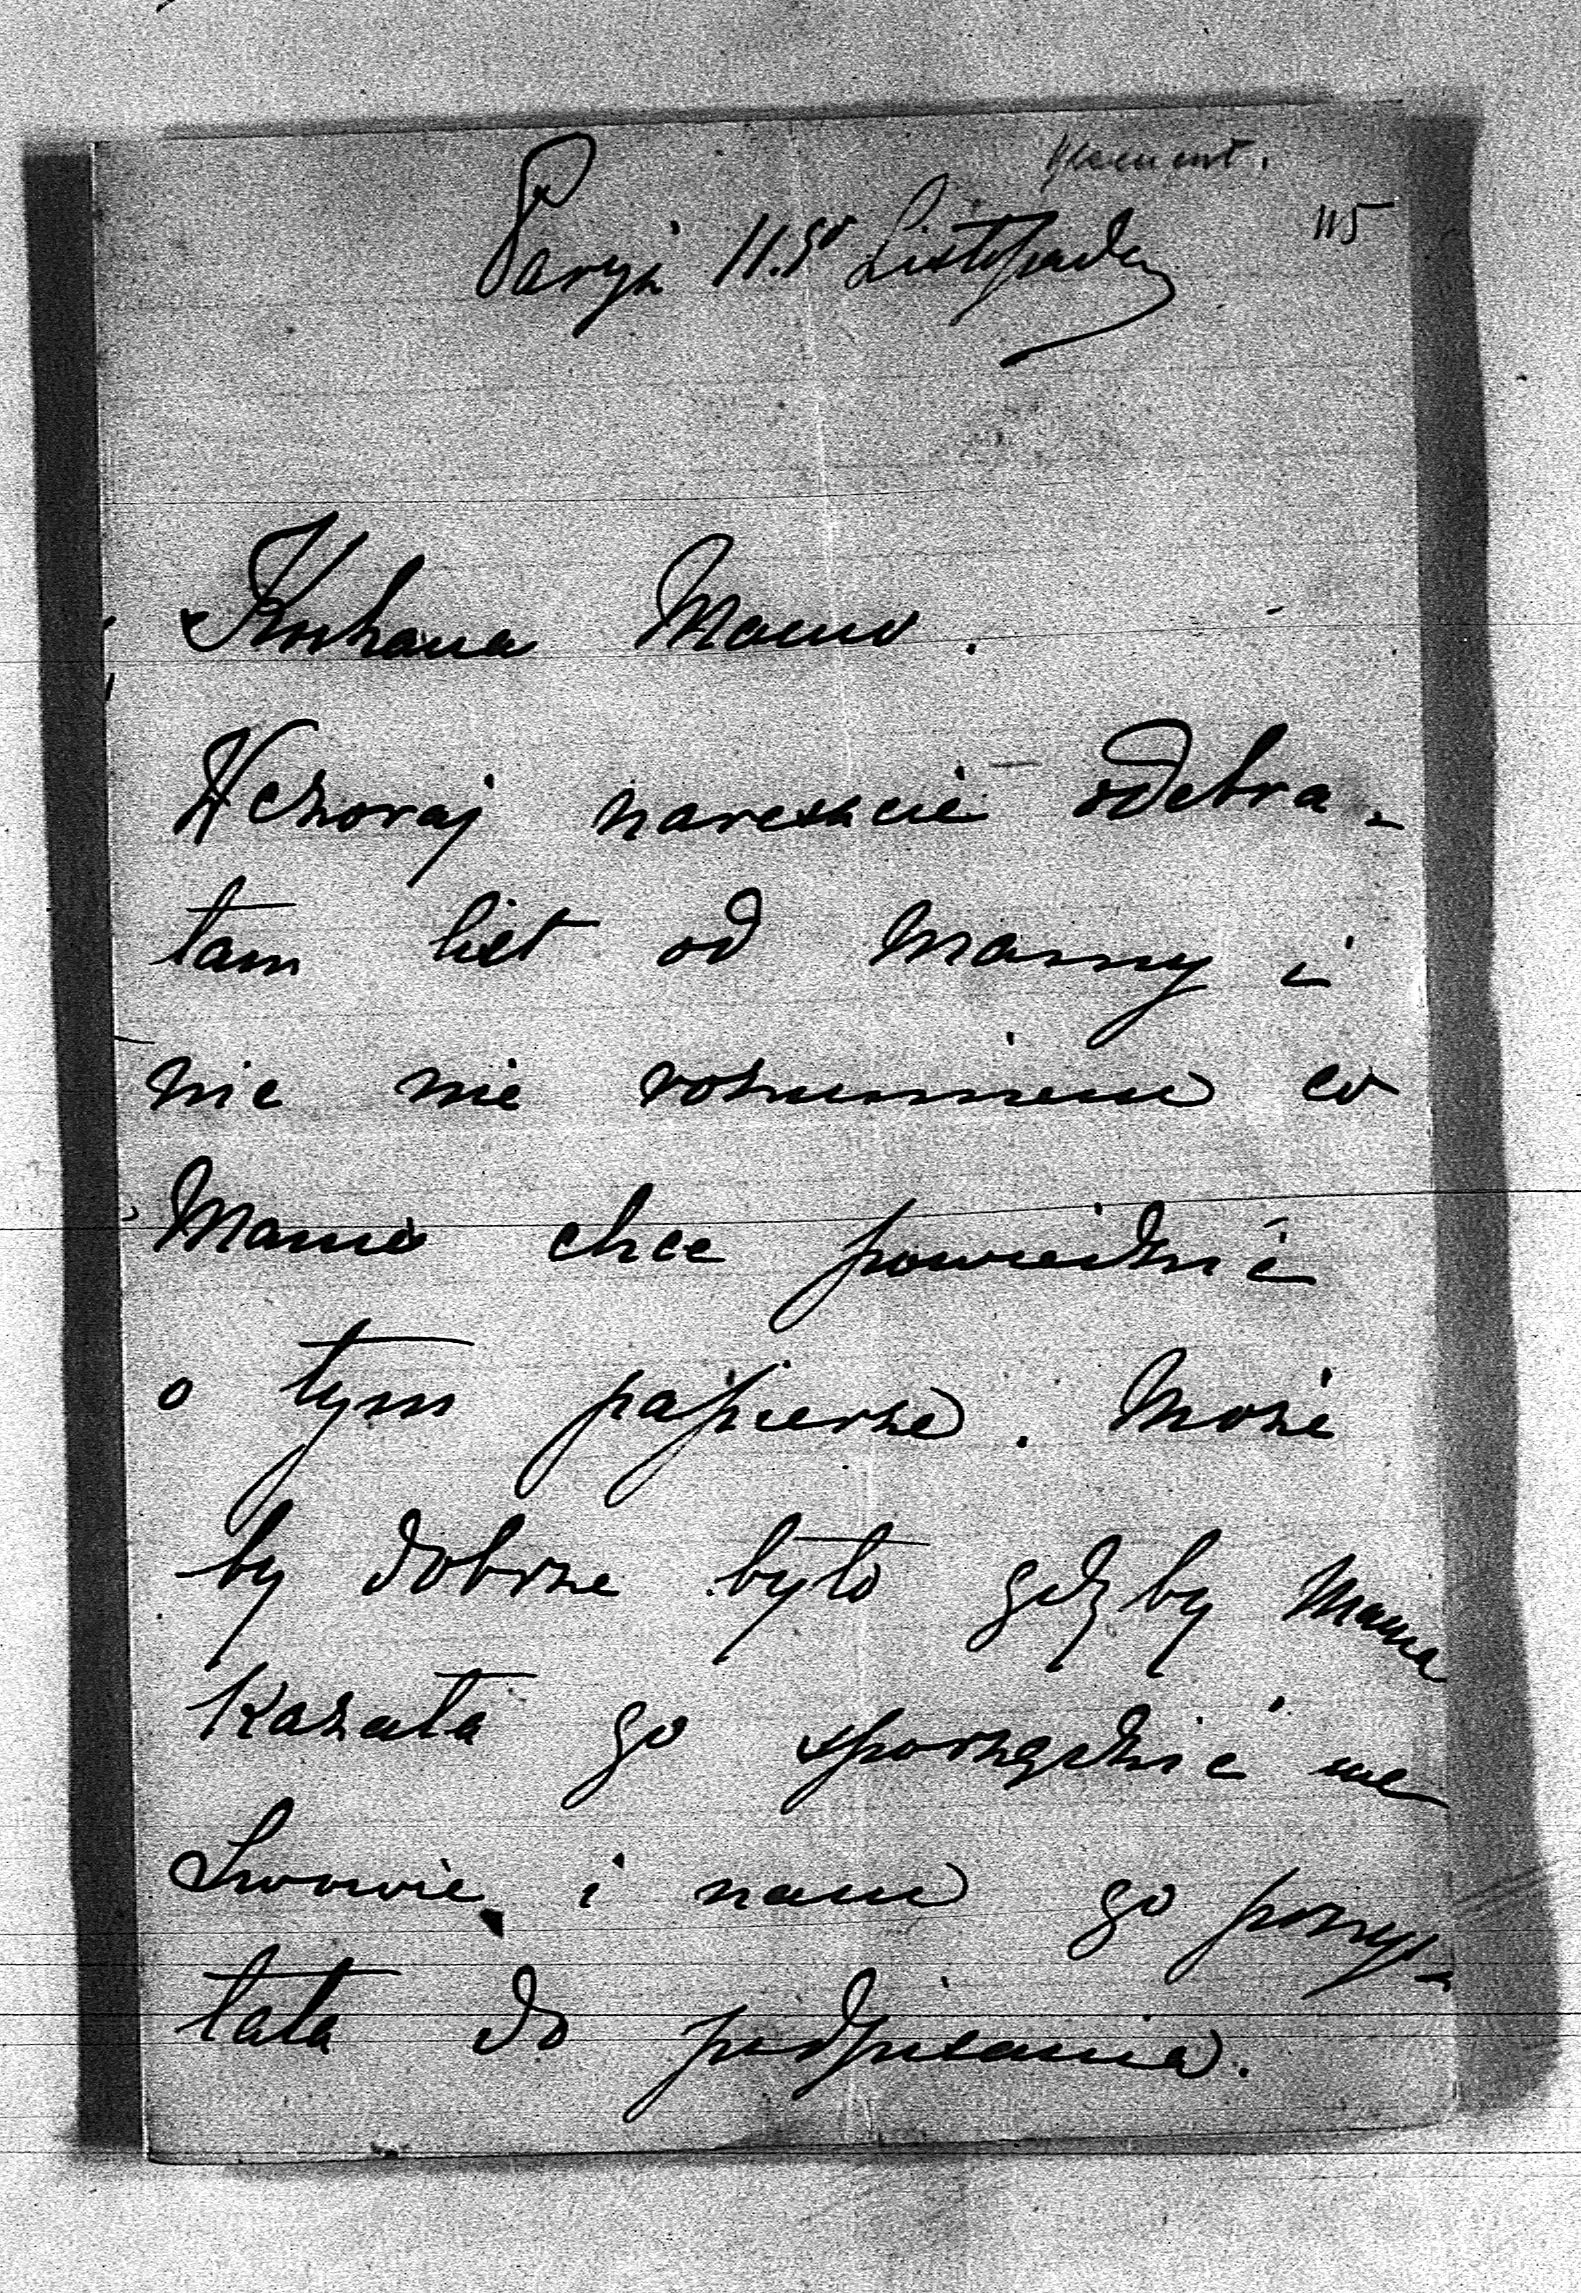 115
Paryż 11.go Listopada
Kochana Mamo.
Wczoraj nareszcie odebra-
łam list od Mamy i
nic nie rozumiem co
Mama chce powiedzić
o tym papierze. Może
by dobrze było gdyby Mama
kazała go sporządzić we
Lwowie i nam go przysy-
łała do podpisania.